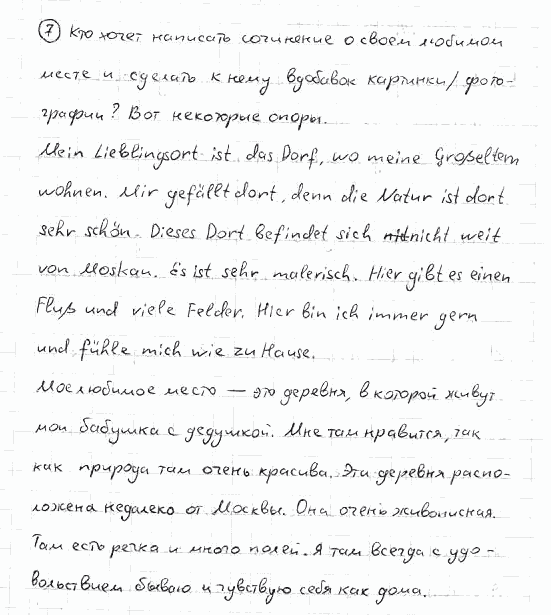 ⑦ Кто хочет написать сочинение о своем любимом
месте и сделать к нему вдобавок картинки/фото-
графии? Вот некоторые опоры.
Mein Lieblingsort ist das Dorf, wo meine Großeltern
wohnen. Mir gefällt dort, denn die Natur ist dort
sehr schön. Dieses Dort befindet sich nicht weit
von Moskau. Es ist sehr malerisch. Hier gibt es einen
Fluß und viele Felder. Hier bin ich immer gern
und fühle mich wie zu Hause.
Мое любимое место — это деревня, в которой живут
мои бабушка с дедушкой. Мне там нравится, так
как природа там очень красива. Эта деревня распо-
ложена недалеко от Москвы. Она очень живописная.
Там есть речка и много полей. Я там всегда с удо-
вольствием бываю и чувствую себя как дома.